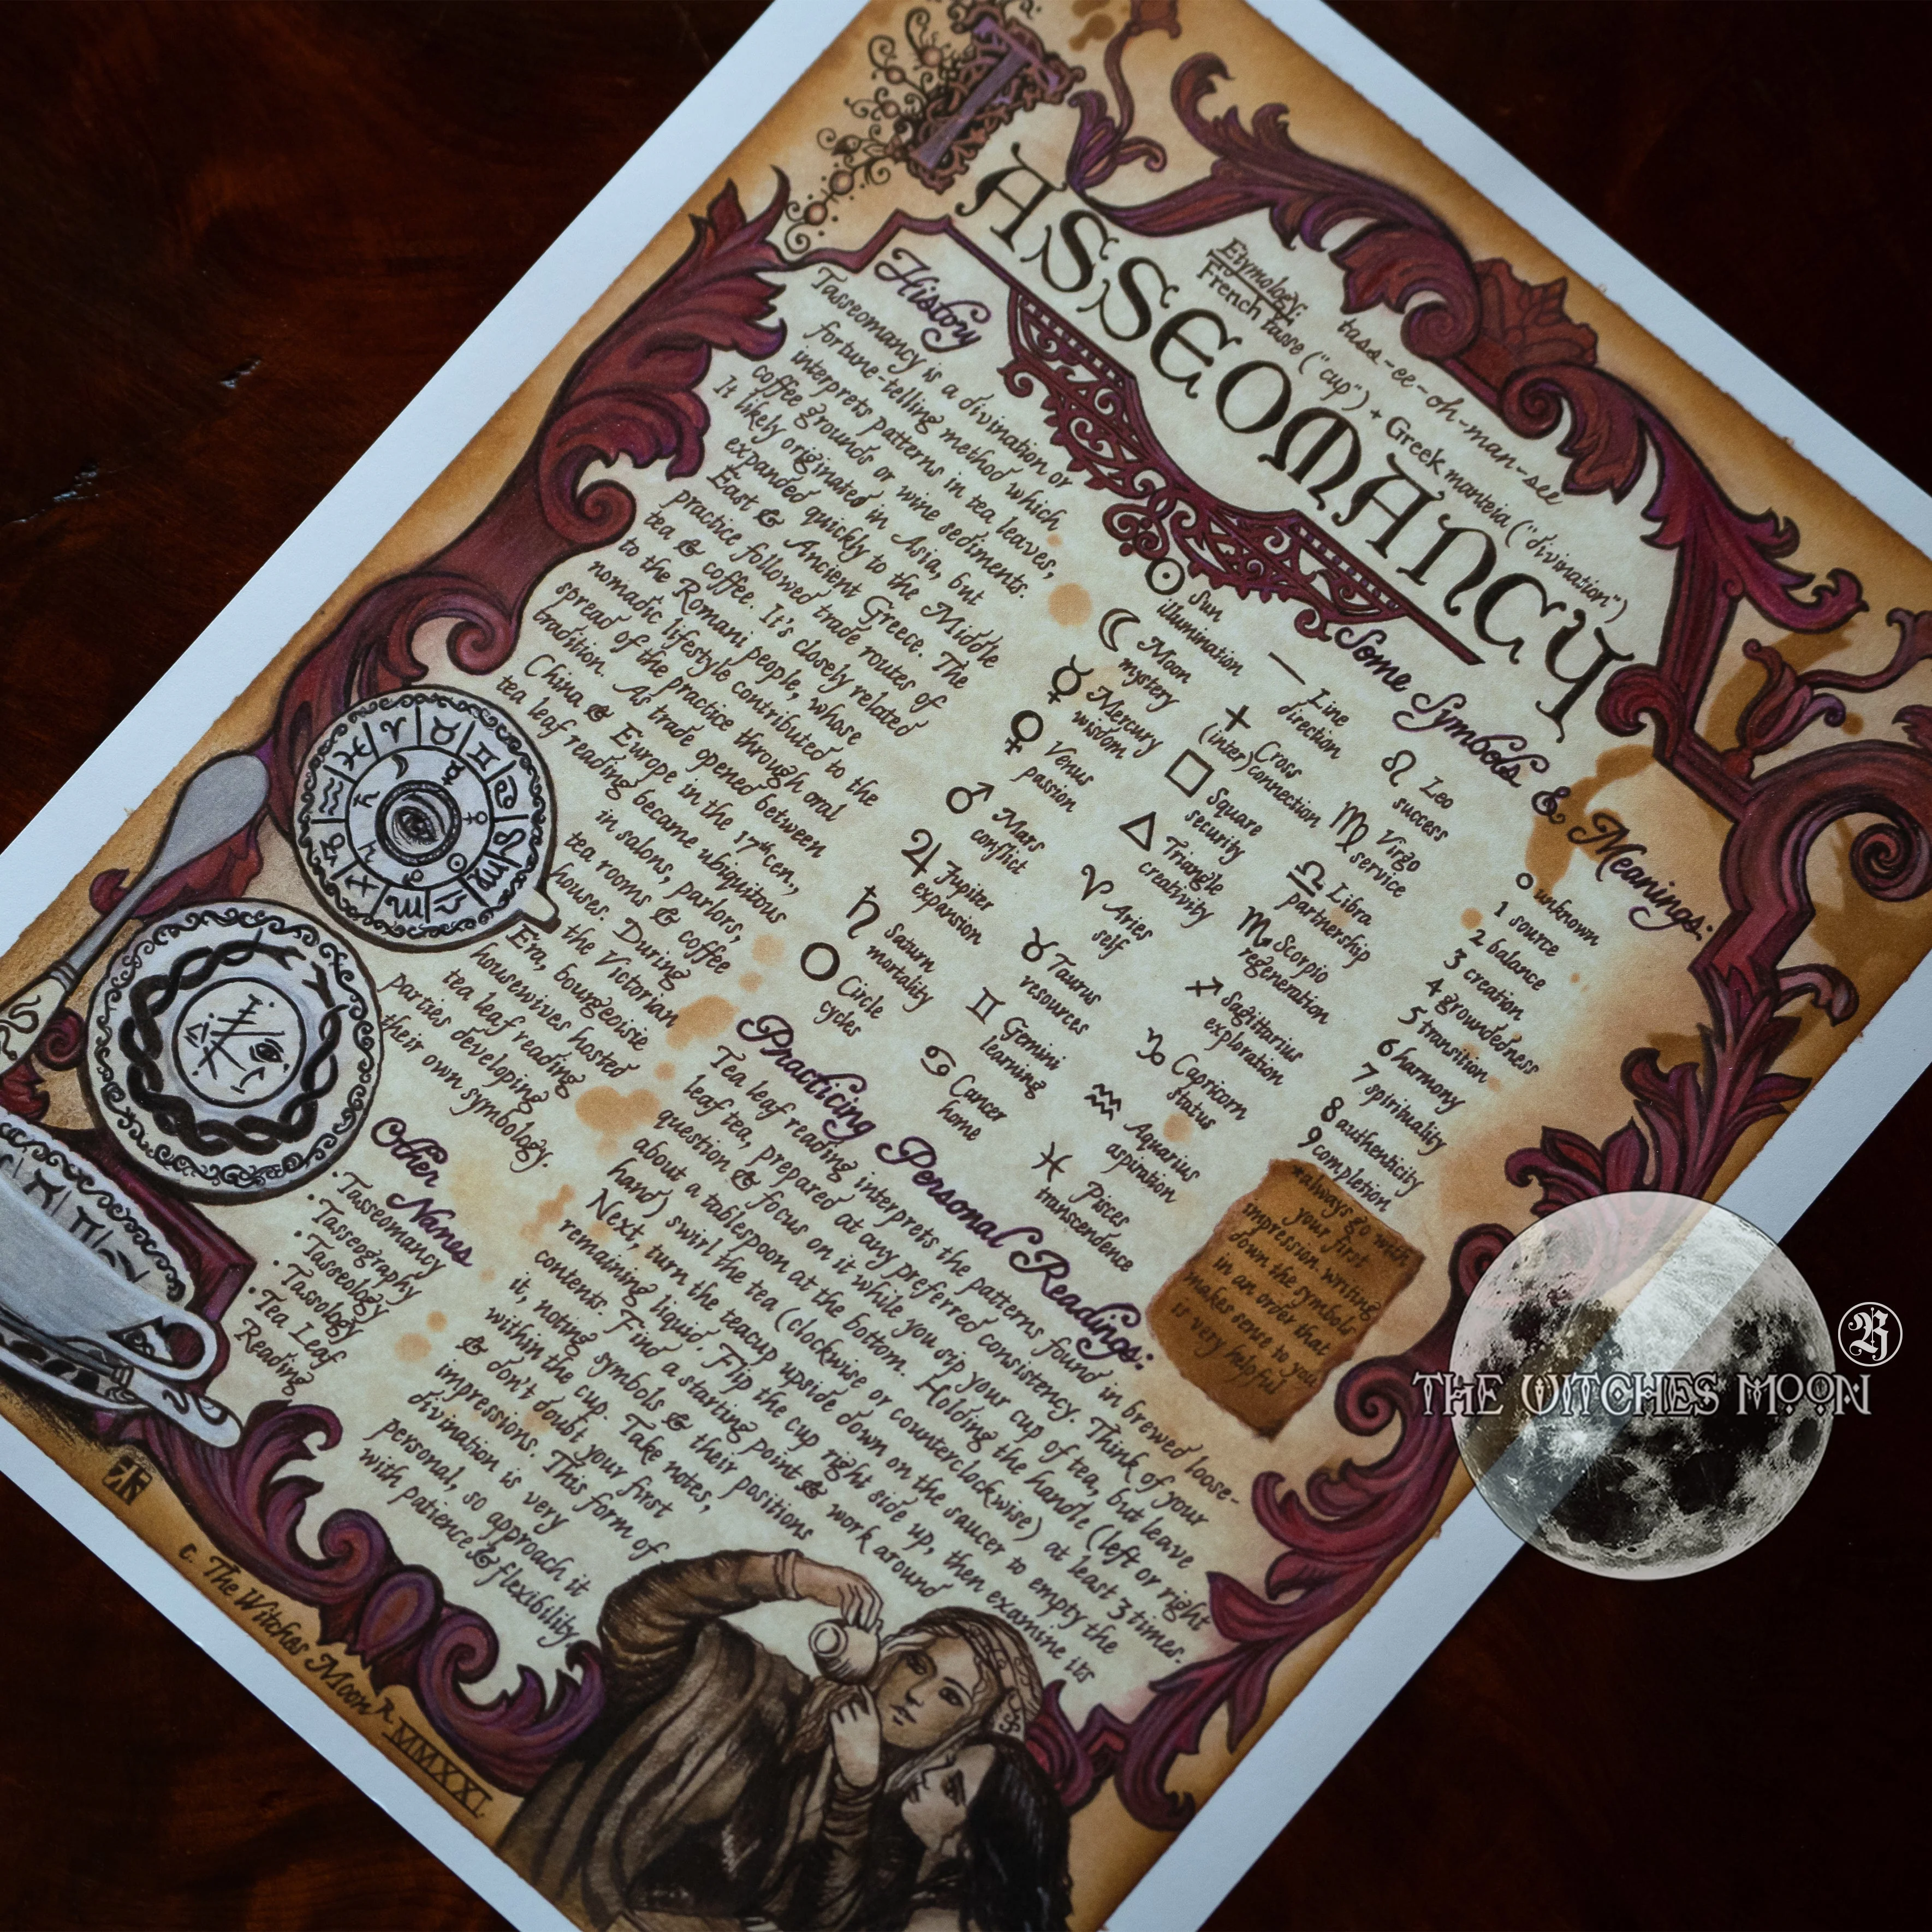 TASSEOMANCY
tass-ee-oh-man-see
Etymology:
French tasse ("cup") + Greek manteia ("divination")
History
Tasseomancy is a divination or
fortune-telling method which
interprets patterns in tea leaves,
coffee grounds or wine sediments.
It likely originated in Asia, but
expanded quickly to the Middle
East & Ancient Greece. The
practice followed trade routes of
tea & coffee. It's closely related
to the Romani people, whose
nomadic lifestyle contributed to the
spread of the practice through oral
tradition. As trade opened between
China & Europe in the 17th cen.,
tea leaf reading became ubiquitous
in salons, parlors,
tea rooms & coffee
houses. During
the Victorian
Era, bourgeoisie
housewives hosted
tea leaf reading
parties developing
their own symbology.
Some Symbols & Meanings:
Sun
illumination
Moon
mystery
Mercury
wisdom
Venus
passion
Mars
conflict
Jupiter
expansion
Saturn
mortality
Circle
cycles
Line
direction
Cross
(inter)connection
Square
security
Triangle
creativity
Aries
self
Taurus
resources
Gemini
learning
Cancer
home
Leo
success
Virgo
service
Libra
partnership
Scorpio
regeneration
Sagittarius
exploration
Capricorn
status
Aquarius
aspiration
Pisces
transcendence
0 unknown
1 source
2 balance
3 creation
4 groundedness
5 transition
6 harmony
7 spirituality
8 authenticity
9 completion
*always go with
your first
impression. writing
down the symbols
in an order that
makes sense to you
is very helpful
Practicing Personal Readings:
Tea leaf reading interprets the patterns found in brewed loose-
leaf tea, prepared at any preferred consistency. Think of your
question & focus on it while you sip your cup of tea, but leave
about a tablespoon at the bottom. Holding the handle (left or right
hand) swirl the tea (clockwise or counterclockwise) at least 3 times.
Next, turn the teacup upside down on the saucer to empty the
remaining liquid. Flip the cup right side up, then examine its
contents. Find a starting point & work around
it, noting symbols & their positions
within the cup. Take notes,
& don't doubt your first
impressions. This form of
divination is very
personal, so approach it
with patience & flexibility
Other Names
• Tasseomancy
• Tasseography
• Tasseology
• Tassology
• Tea Leaf
Reading
c. The Witches Moon R
MMXXI
THE WITCHES MOON
R